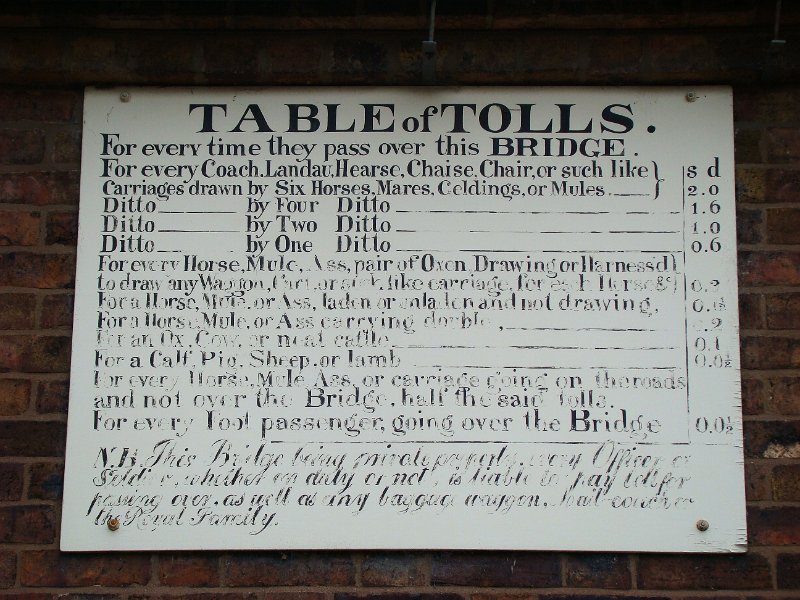 TABLE of TOLLS.
For every time they pass over this BRIDGE.
For every Coach, Landau, Hearse, Chaise, Chair, or such like } s d
Carriages drawn by Six Horses, Mares, Geldings, or Mules 2.0
Ditto by Four Ditto 1.6
Ditto by Two Ditto 1.0
Ditto by One Ditto 0.6
For every Horse, Mule, Ass, pair of Oxen, Drawing or Harness'd }
to draw any Waggon, Cart, or such like carriage, for each Horse &c 0.2
For a Horse, Mule, or Ass, laden or unladen and not drawing, 0.1½
For a Horse, Mule, or Ass carrying double, 0.2
For an Ox, Cow, or neat cattle 0.1
For a Calf, Pig, Sheep, or lamb 0.0½
For every Horse, Mule Ass, or carriage going on the roads
and not over the Bridge, half the said tolls.
For every Foot passenger, going over the Bridge 0.0½
N.B. This Bridge being private property, every Officer or
Soldier, whether on duty or not, is liable to pay toll for
passing over, as well as any baggage waggon, Mail-coach or
the Royal Family.